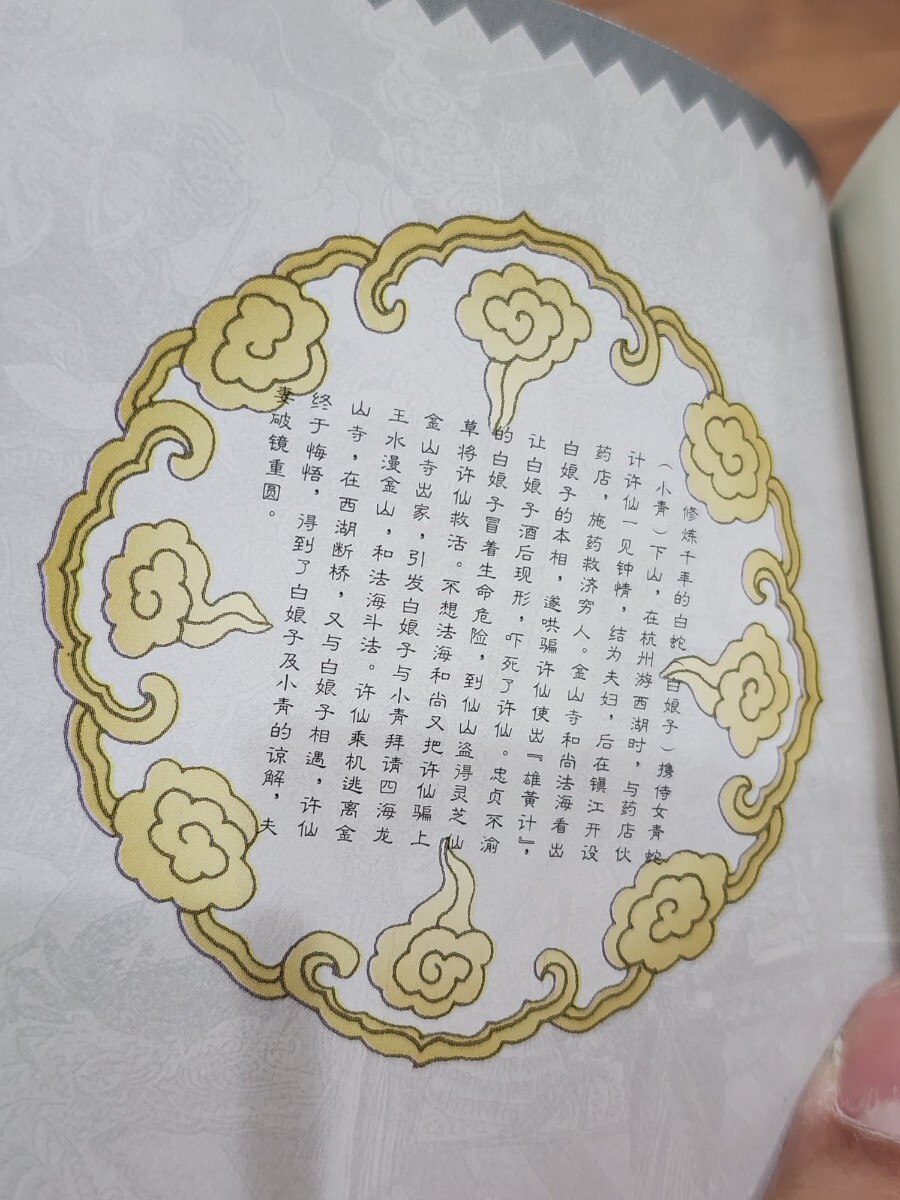 修炼千年的白蛇（白娘子）携侍女青蛇
（小青）下山，在杭州游西湖时，与药店伙
计许仙一见钟情，结为夫妇，后在镇江开设
药店，施药救济穷人。金山寺和尚法海看出
白娘子的本相，遂哄骗许仙使出『雄黄计』，
让白娘子酒后现形，吓死了许仙。忠贞不渝
的白娘子冒着生命危险，到仙山盗得灵芝仙
草将许仙救活。不想法海和尚又把许仙骗上
金山寺出家，引发白娘子与小青拜请四海龙
王水漫金山，和法海斗法。许仙乘机逃离金
山寺，在西湖断桥，又与白娘子相遇，许仙
终于悔悟，得到了白娘子及小青的谅解，夫
妻破镜重圆。